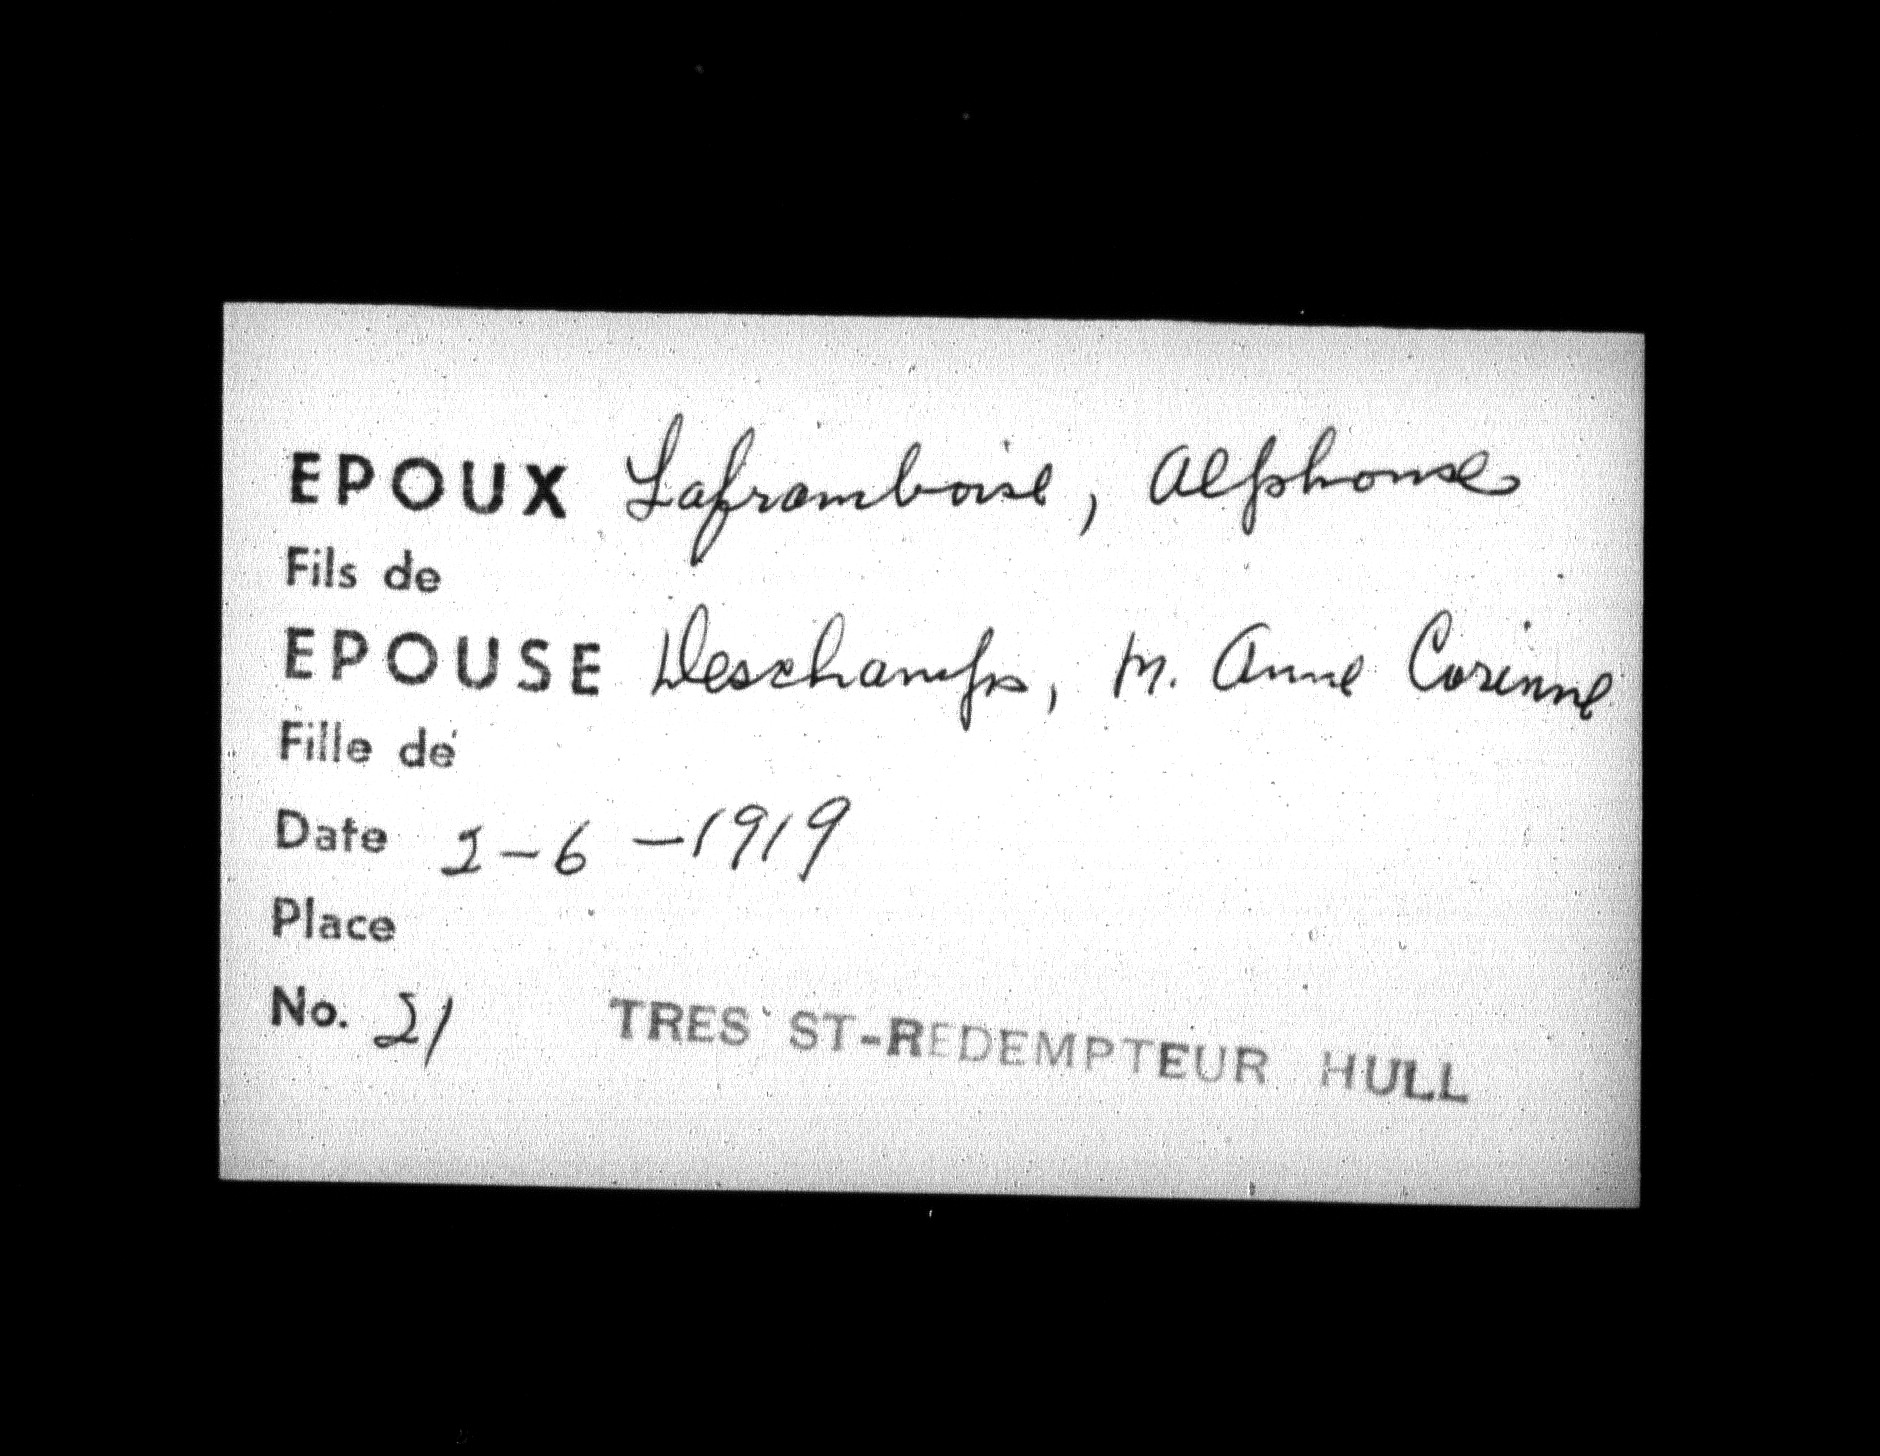 EPOUX Laframboise, Alphonse
Fils de
EPOUSE Deschamps, M. Anne Corinne
Fille de
Date 2-6-1919
Place
No. 21 TRES ST-REDEMPTEUR HULL